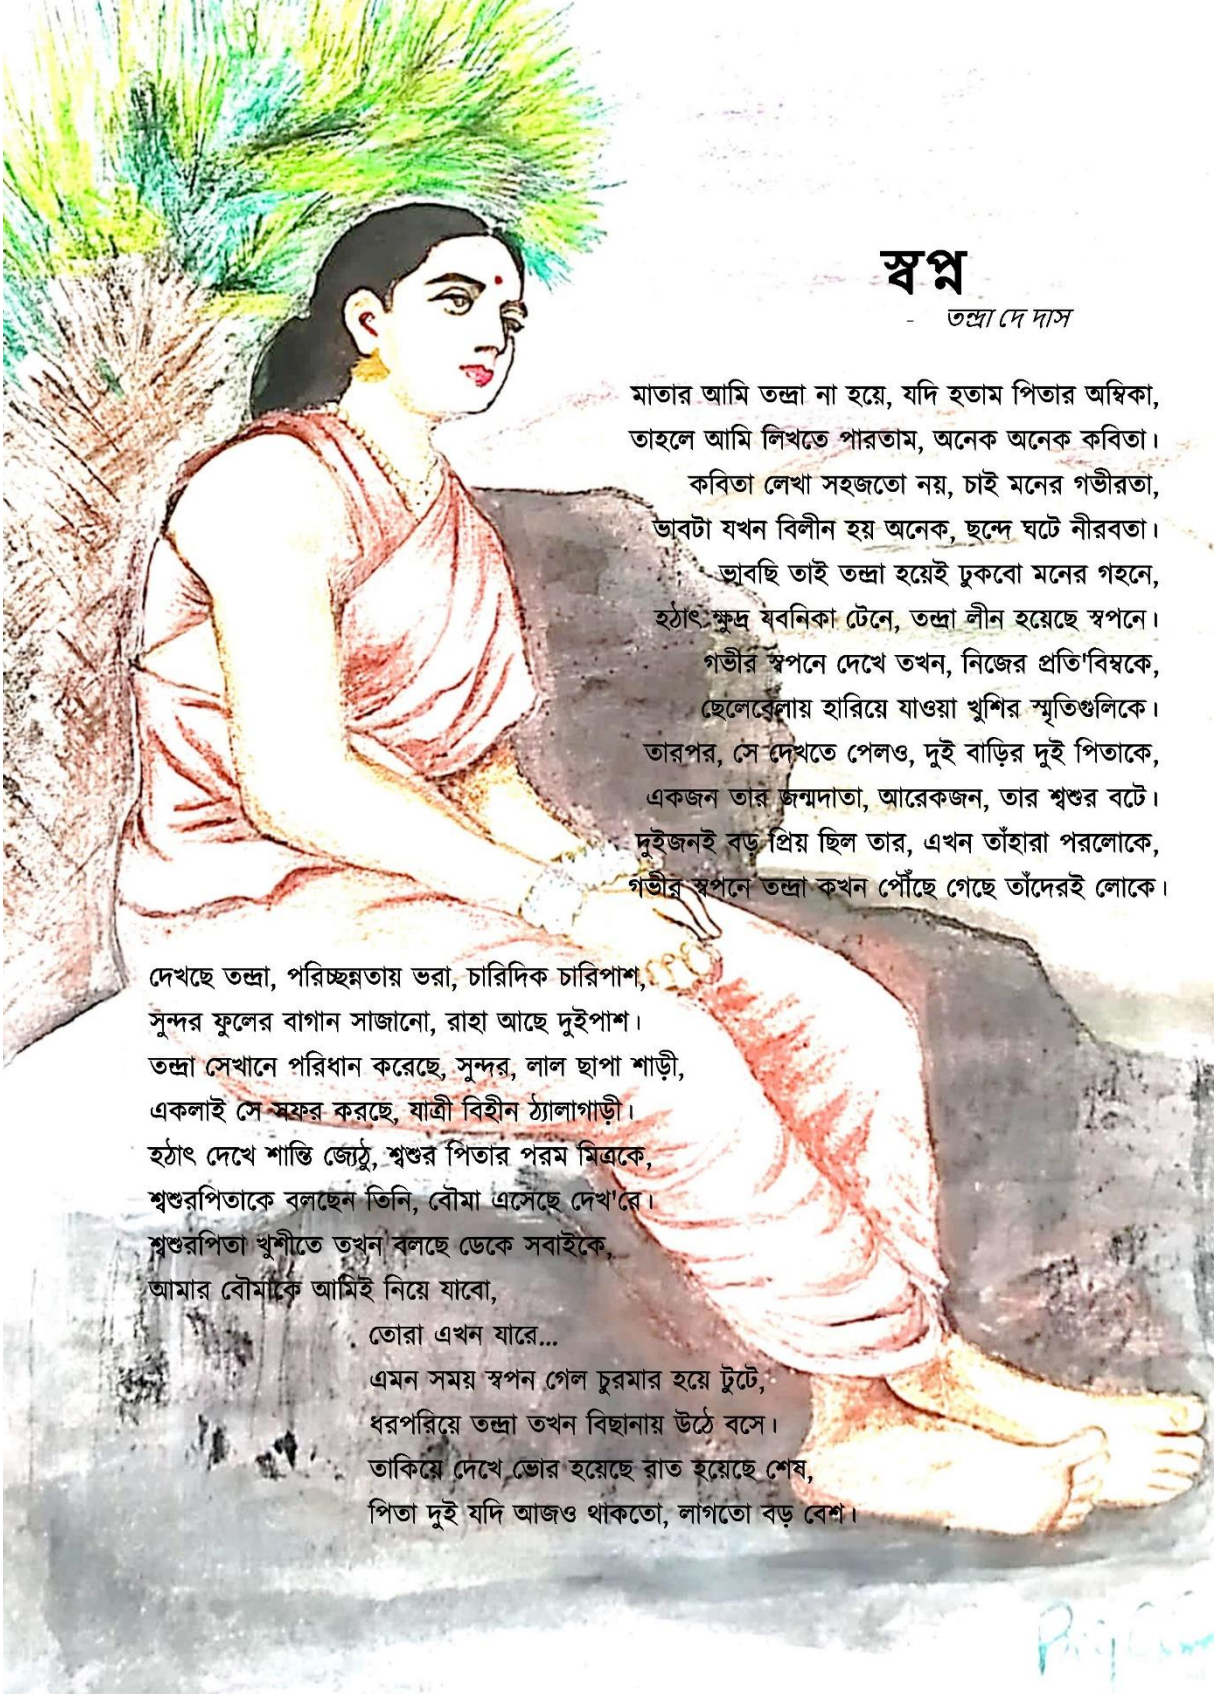 স্বপ্ন
- তন্দ্রা দে দাস
মাতার আমি তন্দ্রা না হয়ে, যদি হতাম পিতার অম্বিকা,
তাহলে আমি লিখতে পারতাম, অনেক অনেক কবিতা।
কবিতা লেখা সহজতো নয়, চাই মনের গভীরতা,
ভাবটা যখন বিলীন হয় অনেক, ছন্দে ঘটে নীরবতা।
ভাবছি তাই তন্দ্রা হয়েই ঢুকবো মনের গহনে,
হঠাৎ ক্ষুদ্র যবনিকা টেনে, তন্দ্রা লীন হয়েছে স্বপনে।
গভীর স্বপনে দেখে তখন, নিজের প্রতি'বিম্বকে,
ছেলেবেলায় হারিয়ে যাওয়া খুশির স্মৃতিগুলিকে।
তারপর, সে দেখতে পেলও, দুই বাড়ির দুই পিতাকে,
একজন তার জন্মদাতা, আরেকজন, তার শ্বশুর বটে।
দুইজনই বড় প্রিয় ছিল তার, এখন তাঁহারা পরলোকে,
গভীর স্বপনে তন্দ্রা কখন পৌঁছে গেছে তাঁদেরই লোকে।
দেখছে তন্দ্রা, পরিচ্ছন্নতায় ভরা, চারিদিক চারিপাশ,
সুন্দর ফুলের বাগান সাজানো, রাহা আছে দুইপাশ।
তন্দ্রা সেখানে পরিধান করেছে, সুন্দর, লাল ছাপা শাড়ী,
একলাই সে সফর করছে, যাত্রী বিহীন ঠ্যালাগাড়ী।
হঠাৎ দেখে শান্তি জ্যেঠু, শ্বশুর পিতার পরম মিত্রকে,
শ্বশুরপিতাকে বলছেন তিনি, বৌমা এসেছে দেখ'রে।
শ্বশুরপিতা খুশীতে তখন বলছে ডেকে সবাইকে,
আমার বৌমাকে আমিই নিয়ে যাবো,
তোরা এখন যারে...
এমন সময় স্বপন গেল চুরমার হয়ে টুটে,
ধরপরিয়ে তন্দ্রা তখন বিছানায় উঠে বসে।
তাকিয়ে দেখে ভোর হয়েছে রাত হয়েছে শেষ,
পিতা দুই যদি আজও থাকতো, লাগতো বড় বেশ।